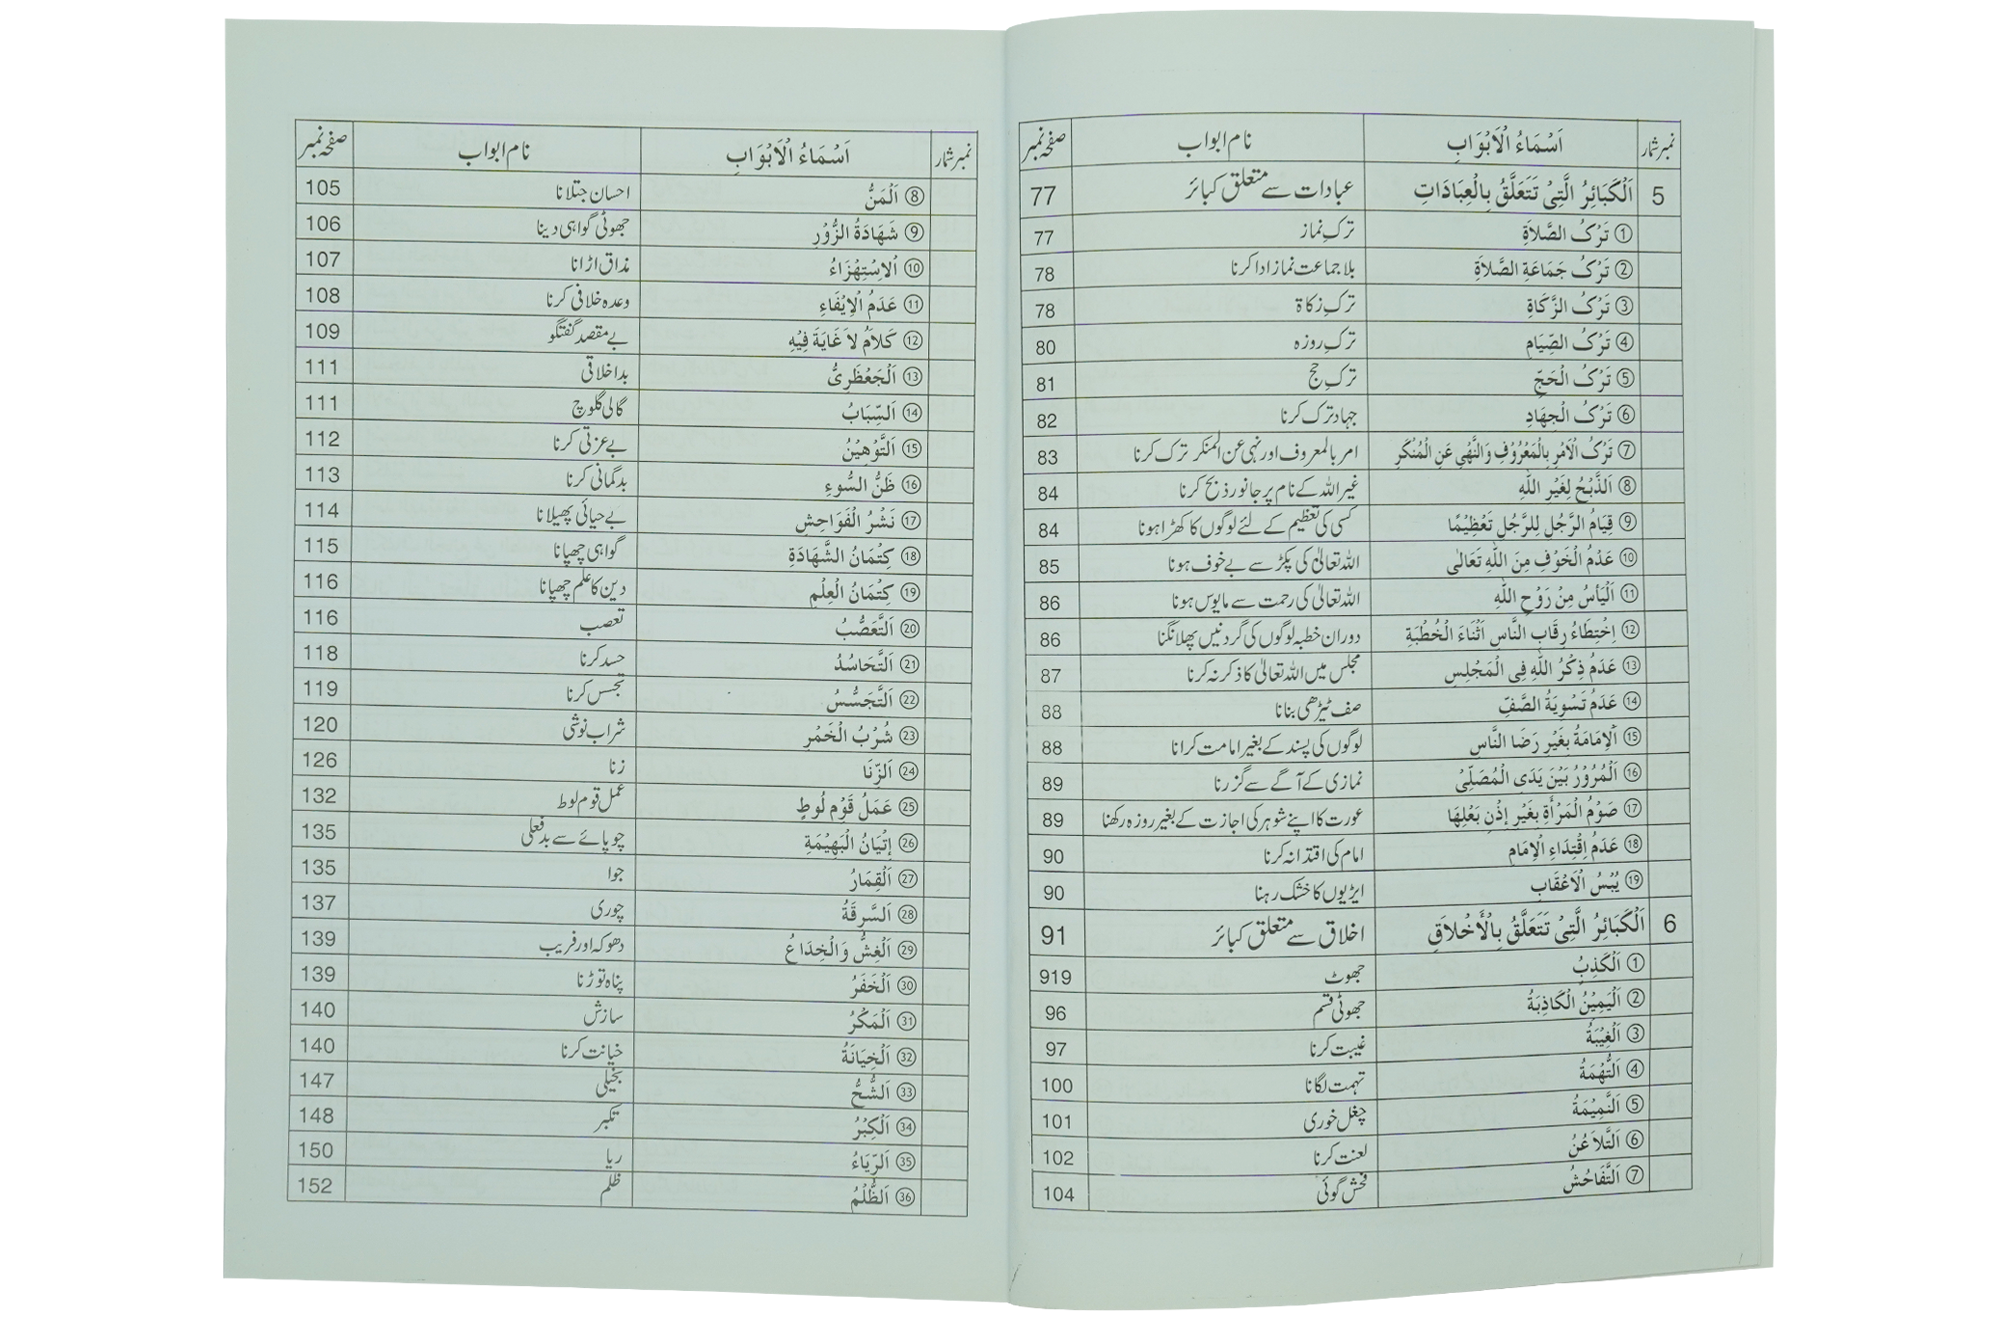 نمبر شمار اَسْمَاءُ الْاَبْوَابِ نام ابواب صفحہ نمبر
5 اَلْكَبَائِرُ الَّتِىْ تَتَعَلَّقُ بِالْعِبَادَاتِ عبادات سے متعلق کبائر 77
① تَرْكُ الصَّلَاةِ ترکِ نماز 77
② تَرْكُ جَمَاعَةِ الصَّلَاةِ بلا جماعت نماز ادا کرنا 78
③ تَرْكُ الزَّكَاةِ ترکِ زکاۃ 78
④ تَرْكُ الصِّيَامِ ترکِ روزہ 80
⑤ تَرْكُ الْحَجِّ ترکِ حج 81
⑥ تَرْكُ الْجِهَادِ جہاد ترک کرنا 82
⑦ تَرْكُ الْاَمْرِ بِالْمَعْرُوْفِ وَالنَّهْىِ عَنِ الْمُنْكَرِ امر بالمعروف اور نہی عن المنکر ترک کرنا 83
⑧ اَلذَّبْحُ لِغَيْرِ اللهِ غیر اللہ کے نام پر جانور ذبح کرنا 84
⑨ قِيَامُ الرَّجُلِ لِلرَّجُلِ تَعْظِيْمًا کسی کی تعظیم کے لئے لوگوں کا کھڑا ہونا 84
⑩ عَدَمُ الْخَوْفِ مِنَ اللهِ تَعَالٰى اللہ تعالیٰ کی پکڑ سے بے خوف ہونا 85
⑪ اَلْيَأْسُ مِنْ رَوْحِ اللهِ اللہ تعالیٰ کی رحمت سے مایوس ہونا 86
⑫ اِخْتِطَاءُ رِقَابِ النَّاسِ اَثْنَاءَ الْخُطْبَةِ دوران خطبہ لوگوں کی گردنیں پھلانگنا 86
⑬ عَدَمُ ذِكْرُ اللهِ فِى الْمَجْلِسِ مجلس میں اللہ تعالیٰ کا ذکر نہ کرنا 87
⑭ عَدَمُ تَسْوِيَةُ الصَّفِّ صف ٹیڑھی بنانا 88
⑮ اَلْاِمَامَةُ بِغَيْرِ رَضَا النَّاسِ لوگوں کی پسند کے بغیر امامت کرانا 88
⑯ اَلْمُرُوْرُ بَيْنَ يَدَىِ الْمُصَلِّىْ نمازی کے آگے سے گزرنا 89
⑰ صَوْمُ الْمَرْأَةِ بِغَيْرِ اِذْنِ بَعْلِهَا عورت کا اپنے شوہر کی اجازت کے بغیر روزہ رکھنا 89
⑱ عَدَمُ اِقْتِدَاءِ الْاِمَامِ امام کی اقتدا نہ کرنا 90
⑲ يُبْسُ الْاَعْقَابِ ایڑیوں کا خشک رہنا 90
6 اَلْكَبَائِرُ الَّتِىْ تَتَعَلَّقُ بِالْأَخْلَاقِ اخلاق سے متعلق کبائر 91
① اَلْكَذِبُ جھوٹ 919
② اَلْيَمِيْنُ الْكَاذِبَةُ جھوٹی قسم 96
③ اَلْغِيْبَةُ غیبت کرنا 97
④ اَلتُّهْمَةُ تہمت لگانا 100
⑤ اَلنَّمِيْمَةُ چغل خوری 101
⑥ اَلتَّلَاعُنُ لعنت کرنا 102
⑦ اَلتَّفَاحُشُ فحش گوئی 104
نمبر شمار اَسْمَاءُ الْاَبْوَابِ نام ابواب صفحہ نمبر
⑧ اَلْمَنُّ احسان جتلانا 105
⑨ شَهَادَةُ الزُّوْرِ جھوٹی گواہی دینا 106
⑩ اَلْاِسْتِهْزَاءُ مذاق اڑانا 107
⑪ عَدَمُ الْاِيْفَاءِ وعدہ خلافی کرنا 108
⑫ كَلَامٌ لَا غَايَةَ فِيْهِ بے مقصد گفتگو 109
⑬ اَلْجَعْظَرِىُّ بداخلاقی 111
⑭ اَلسِّبَابُ گالی گلوچ 111
⑮ اَلتَّوْهِيْنُ بے عزتی کرنا 112
⑯ ظَنُّ السُّوءِ بدگمانی کرنا 113
⑰ نَشْرُ الْفَوَاحِشِ بے حیائی پھیلانا 114
⑱ كِتْمَانُ الشَّهَادَةِ گواہی چھپانا 115
⑲ كِتْمَانُ الْعِلْمِ دین کا علم چھپانا 116
⑳ اَلتَّعَصُّبُ تعصب 116
㉑ اَلتَّحَاسُدُ حسد کرنا 118
㉒ اَلتَّجَسُّسُ تجسس کرنا 119
㉓ شُرْبُ الْخَمْرِ شراب نوشی 120
㉔ اَلزِّنَا زنا 126
㉕ عَمَلُ قَوْمِ لُوطٍ عمل قوم لوط 132
㉖ اِتْيَانُ الْبَهِيْمَةِ چوپائے سے بدفعلی 135
㉗ اَلْقِمَارُ جوا 135
㉘ اَلسَّرِقَةُ چوری 137
㉙ اَلْغِشُّ وَالْخِدَاعُ دھوکہ اور فریب 139
㉚ اَلْخَفَرُ پناہ توڑنا 139
㉛ اَلْمَكْرُ سازش 140
㉜ اَلْخِيَانَةُ خیانت کرنا 140
㉝ اَلشُّحُّ بخیلی 147
㉞ اَلْكِبْرُ تکبر 148
㉟ اَلرِّيَاءُ ریا 150
㊱ اَلظُّلْمُ ظلم 152